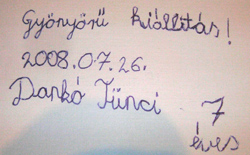 Gyönyörű kiállítás!
2008.07.26.
Dankó Tünci 7
éves